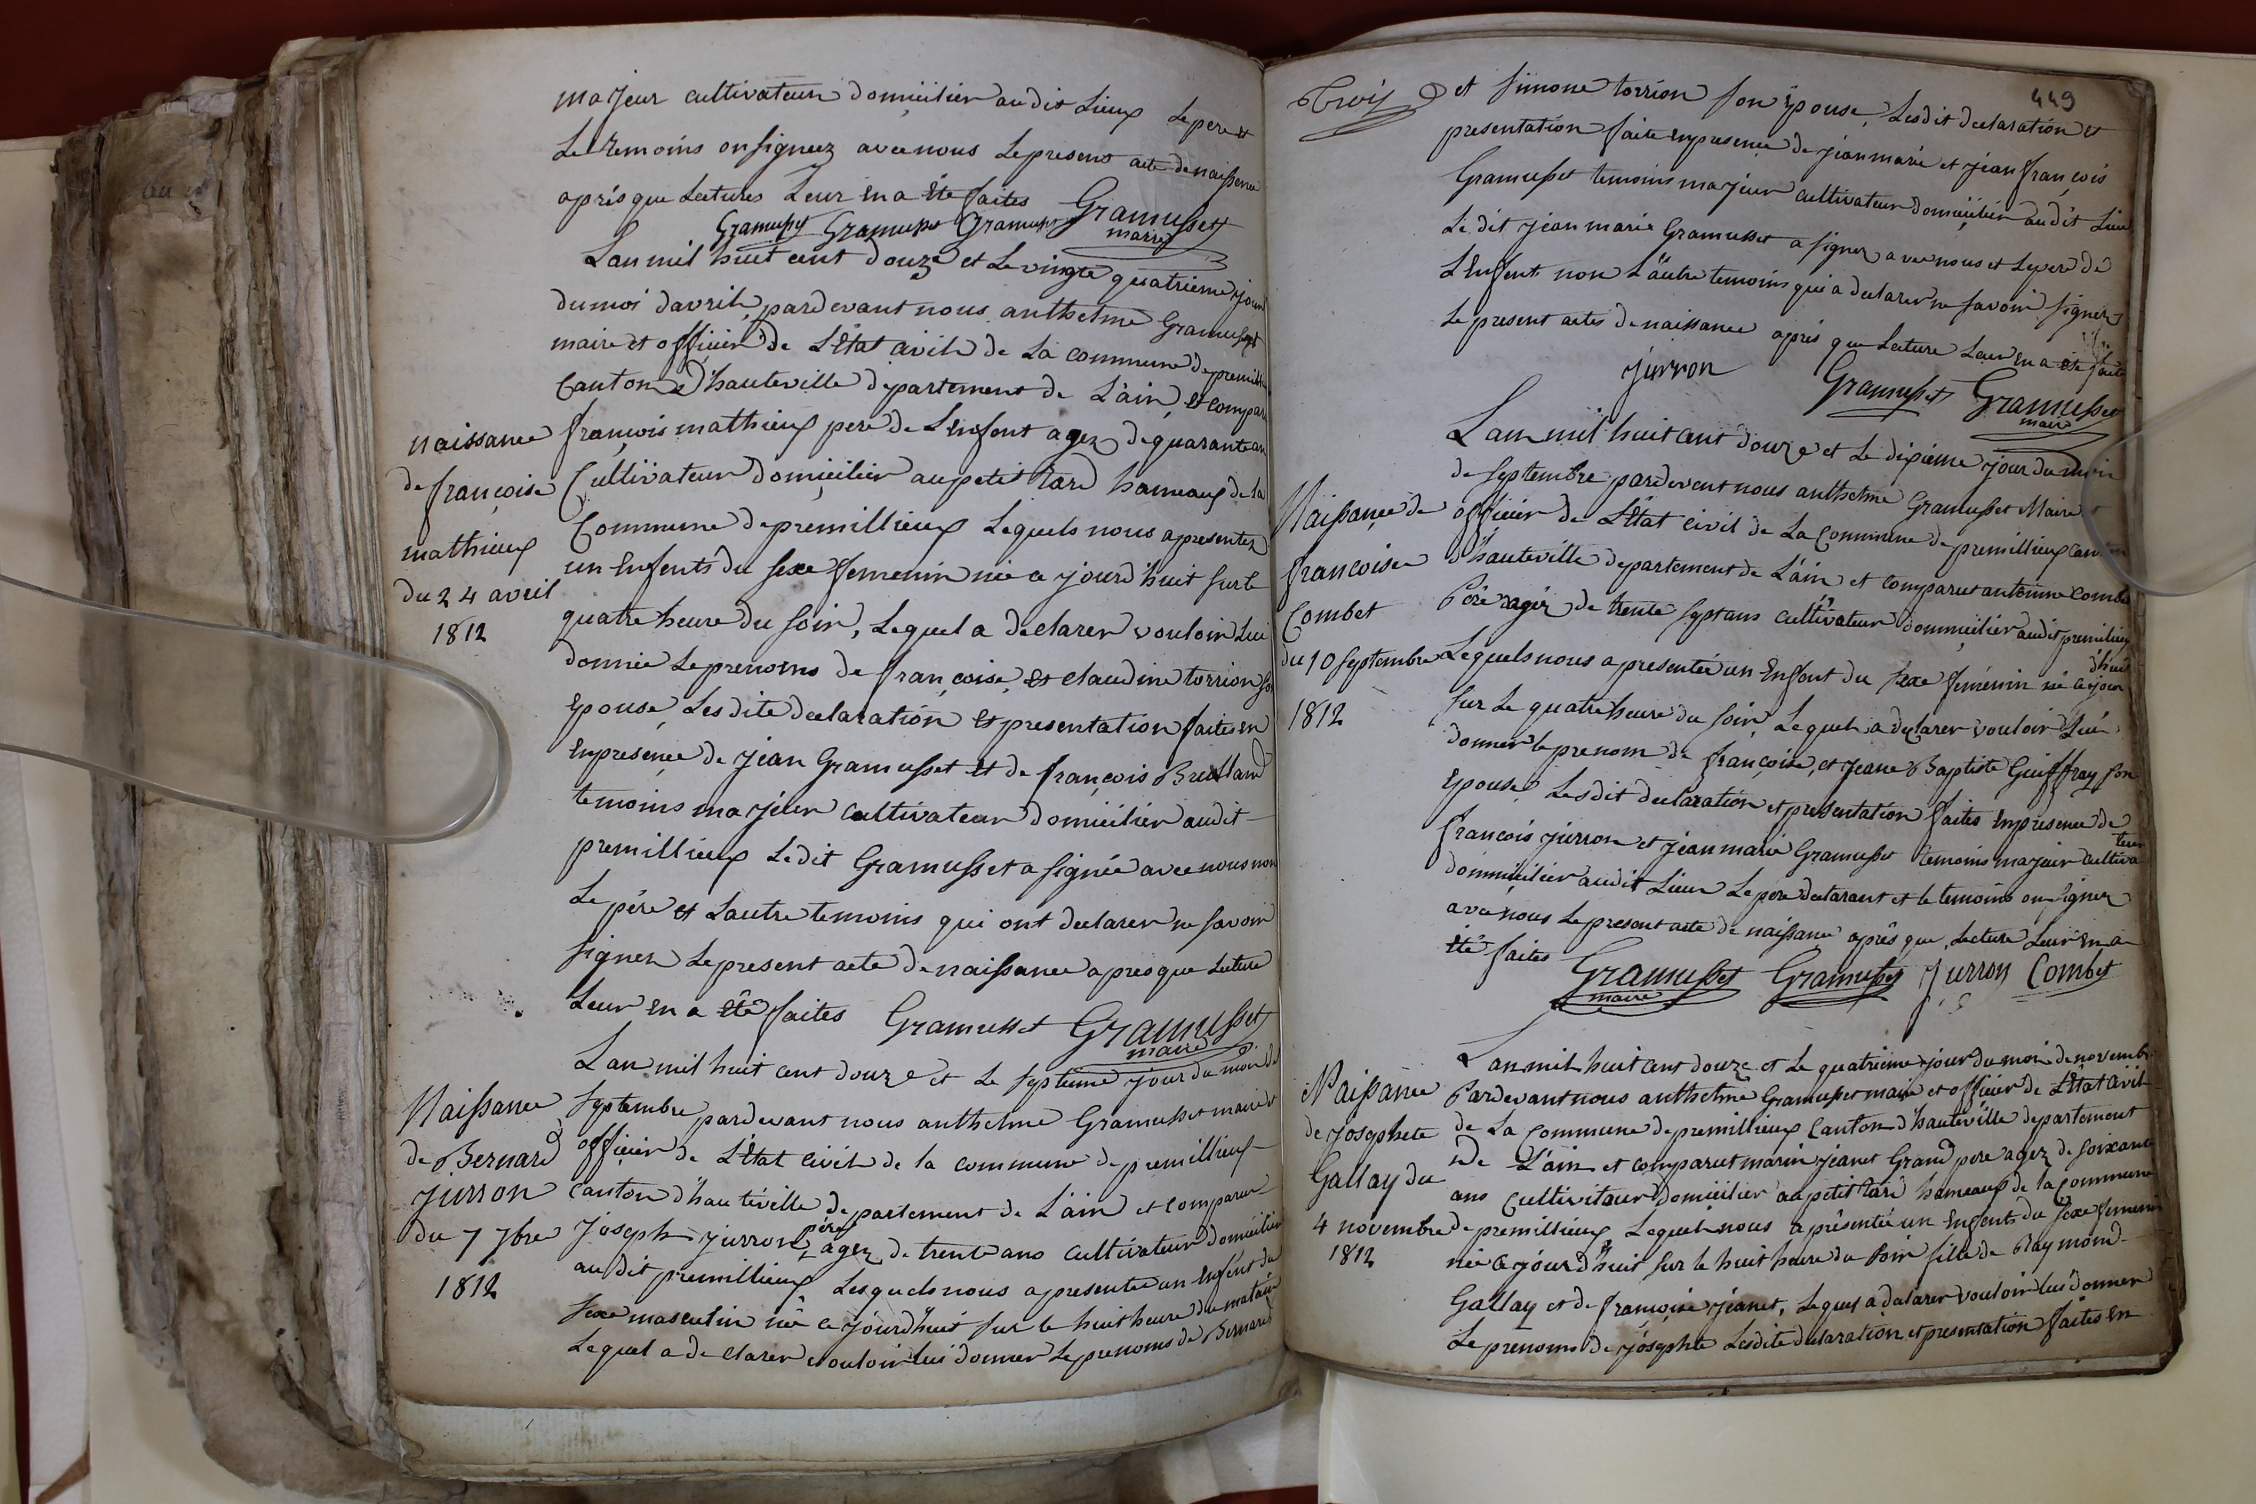 majeur cultivateur domicilier audit Lieux Le pere et
Le temoins on signeez avec nous Le present acte de naissance
aprés que Lectures Leur en a été faites Gramusset
Gramusset Gramusset Gramusset maire
Lan mil huit cent douze et Le vingte quatrieme jour
du moi davril, pardevant nous anthelme Gramusset
maire et officier de L'État civil de La commune de premillieux
Canton d'hauteville département de L'ain, et compar
naissance
de françoise
mathieux
du 24 avril
1812
françois mathieux pere de L'enfent agez de quarante an
Cultivateur domicilier au petit tard hameaux de la
Commune de premillieux Lequels nous a presentez
un Enfents du sexe femenin née ce jourd'huit sur le
quatre heure du soir, Lequel a declarer vouloir Lui
donnée Le prenoms de françoise, et claudine torrion son
Epouse, Les dite declaration et presentation faites en
En presence de jean Gramusset et de françois Brelland
temoins majeur cultivateur domicilier audit
premillieux Le dit Gramusset a signée avec nous non
Le pére et Lautre temoins qui ont declarer ne savoir
signer Le present acte de naissance apres que Lecture
Leur en a été faites Gramusset Gramusset
maire
Naissance
de Bernard
Jurron
du 7 7bre
1812
Lan mil huit cent douze et Le septieme jour du moi de
Septembre pardevant nous anthelme Gramusset maire et
officier de L'État civil de la commune de premillieux
Canton d'hautéville département de L'ain et comparu
Joseph jurron pére agez de trente ans cultivateur domicilier
au dit premillieux Lesquels nous a presente un Enfent du
Sexe masculin né ce jourd'huit sur le huit heure du matin
Lequel a declarer vouloir lui donner Le prenoms de Bernard
449
Trois
et simone torrion son Epouse, Lesdit declaration et
presentation faite en presence de jean marie et jean françois
Gramusset temoins majeur cultivateur domicilier audit Lieu
Le dit jean marie Gramusset a signer avec nous et Le pere de
L'Enfent non L'autre temoins qui a declarer ne savoir signer
Le present actes de naissance aprés que Lecture Leur en a été faite
jurron Gramusset Gramusset
maire
Naissance de
françoise
Combet
du 10 septembre
1812
Lan mil huit cent douze et Le dixieme jour du moi
de septembre pardevent nous anthelme Gramusset Maire et
officier de L'État civil de La Commune de premillieux canton
d'hauteville departement de L'ain et comparut antoinne combet
Pére agéz de trente sept ans cultivateur dommicilier audit premillieux
Lequels nous a presentée un Enfent du sexe femenin né ce jour d'huit
sur Le quatre heure du soir, Lequel a declarer vouloir Lui
donner le prenom de françoise, et jeane Baptiste Guiffray son
Epouse, Les dit declaration et presentation faites en presence de
francois jurron et jean marie Gramusset temoins majeur cultivateur
dommicilier audit Lieux Le pere declarant et le temoins on signer
avec nous Le present acte de naissance aprés que Lecture Leur en a
été faites Gramusset Gramusset Jurron Combet
maire
Naissance
de Josephete
Gallay du
4 novembre
1812
Lan mil huit cent douze et Le quatrieme jour du moi de novembre
Pardevant nous anthelme Gramusset maire et officier de L'État civil
de La Commune de premillieux Canton d'hauteville departement
de L'ain et comparut marin jeanet Grand pere agez de soixante
ans Cultivitaur domicilier au petit tard hameaux de la commune
de premillieux Lequel nous a présentée un Enfents du Sexe femenin
née ce jourd'huit sur le huit heure du soir fille de Raymond
Gallay et de françoise jéanet, Lequel a declarer vouloir lui donner
Le prenoms de joséphete Lesdite declaration et presentation faites en